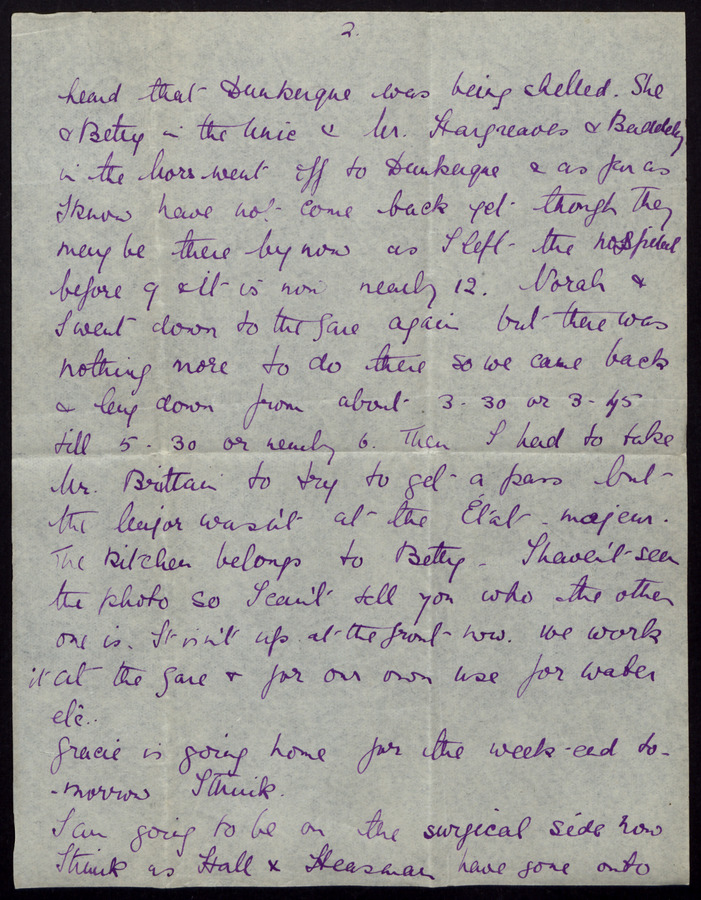 2.
heard that Dunkerque was being shelled. She
& Betty in the Unic & Mr. Hargreaves & Baddeley
in the Mors went off to Dunkerque & as far as
I know have not come back yet though they
may be there by now as I left the hospital
before 9 & it is now nearly 12. Norah &
I went down to the Gare again but there was
nothing more to do there so we came back
& lay down from about 3-30 or 3-45
till 5-30 or nearly 6. Then I had to take
Mr. Brittain to try to get a pass but
the Major wasn't at the État-majeur.
The Kitchen belongs to Betty. I haven't seen
the photo so I can't tell you who the other
one is. It isn't up at the front now. We work
it at the Gare & for our own use for water
etc..
Gracie is going home for the week-end to-
-morrow I think.
I am going to be on the surgical side now
I think as Hall & Heasman have gone onto